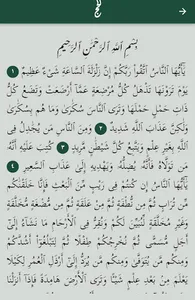 بِسْمِ ٱللَّهِ ٱلرَّحْمَٰنِ ٱلرَّحِيمِ
يَٰٓأَيُّهَا ٱلنَّاسُ ٱتَّقُوا۟ رَبَّكُمْ إِنَّ زَلْزَلَةَ ٱلسَّاعَةِ شَىْءٌ عَظِيمٌ ١
يَوْمَ تَرَوْنَهَا تَذْهَلُ كُلُّ مُرْضِعَةٍ عَمَّآ أَرْضَعَتْ وَتَضَعُ كُلُّ
ذَاتِ حَمْلٍ حَمْلَهَا وَتَرَى ٱلنَّاسَ سُكَٰرَىٰ وَمَا هُم بِسُكَٰرَىٰ
وَلَٰكِنَّ عَذَابَ ٱللَّهِ شَدِيدٌ ٢ وَمِنَ ٱلنَّاسِ مَن يُجَٰدِلُ فِى
ٱللَّهِ بِغَيْرِ عِلْمٍ وَيَتَّبِعُ كُلَّ شَيْطَٰنٍ مَّرِيدٍ ٣ كُتِبَ عَلَيْهِ أَنَّهُۥ
مَن تَوَلَّاهُ فَأَنَّهُۥ يُضِلُّهُۥ وَيَهْدِيهِ إِلَىٰ عَذَابِ ٱلسَّعِيرِ ٤
يَٰٓأَيُّهَا ٱلنَّاسُ إِن كُنتُمْ فِى رَيْبٍ مِّنَ ٱلْبَعْثِ فَإِنَّا خَلَقْنَٰكُم
مِّن تُرَابٍ ثُمَّ مِن نُّطْفَةٍ ثُمَّ مِنْ عَلَقَةٍ ثُمَّ مِن مُّضْغَةٍ مُّخَلَّقَةٍ
وَغَيْرِ مُخَلَّقَةٍ لِّنُبَيِّنَ لَكُمْ وَنُقِرُّ فِى ٱلْأَرْحَامِ مَا نَشَآءُ إِلَىٰٓ
أَجَلٍ مُّسَمًّى ثُمَّ نُخْرِجُكُمْ طِفْلًا ثُمَّ لِتَبْلُغُوٓا۟ أَشُدَّكُمْ
وَمِنكُم مَّن يُتَوَفَّىٰ وَمِنكُم مَّن يُرَدُّ إِلَىٰٓ أَرْذَلِ ٱلْعُمُرِ لِكَيْلَا
يَعْلَمَ مِنۢ بَعْدِ عِلْمٍ شَيْـًٔا وَتَرَى ٱلْأَرْضَ هَامِدَةً فَإِذَآ أَنزَلْنَا